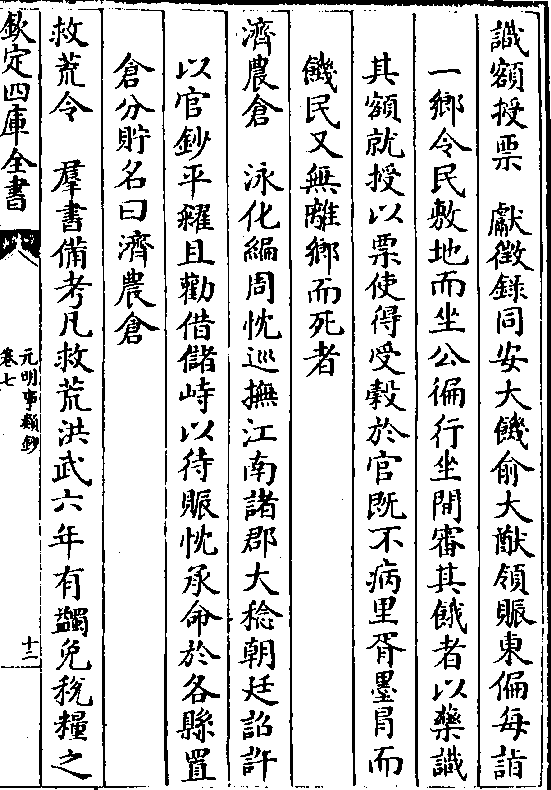 識額授票　獻徵錄同安大饑俞大猷領賑東偏每詣
一鄉令民敷地而坐公徧行坐間審其餓者以藥識
其額就授以票使得受穀於官既不病里胥墨冐而
饑民又無離鄉而死者
濟農倉　泳化編周忱巡撫江南諸郡大稔朝廷詔許
以官鈔平糴且勸借儲峙以待賑忱承命於各縣置
倉分貯名曰濟農倉
救荒令　羣書備考凡救荒洪武六年有蠲免稅糧之
欽定四庫全書
元明事類鈔
卷七
十二